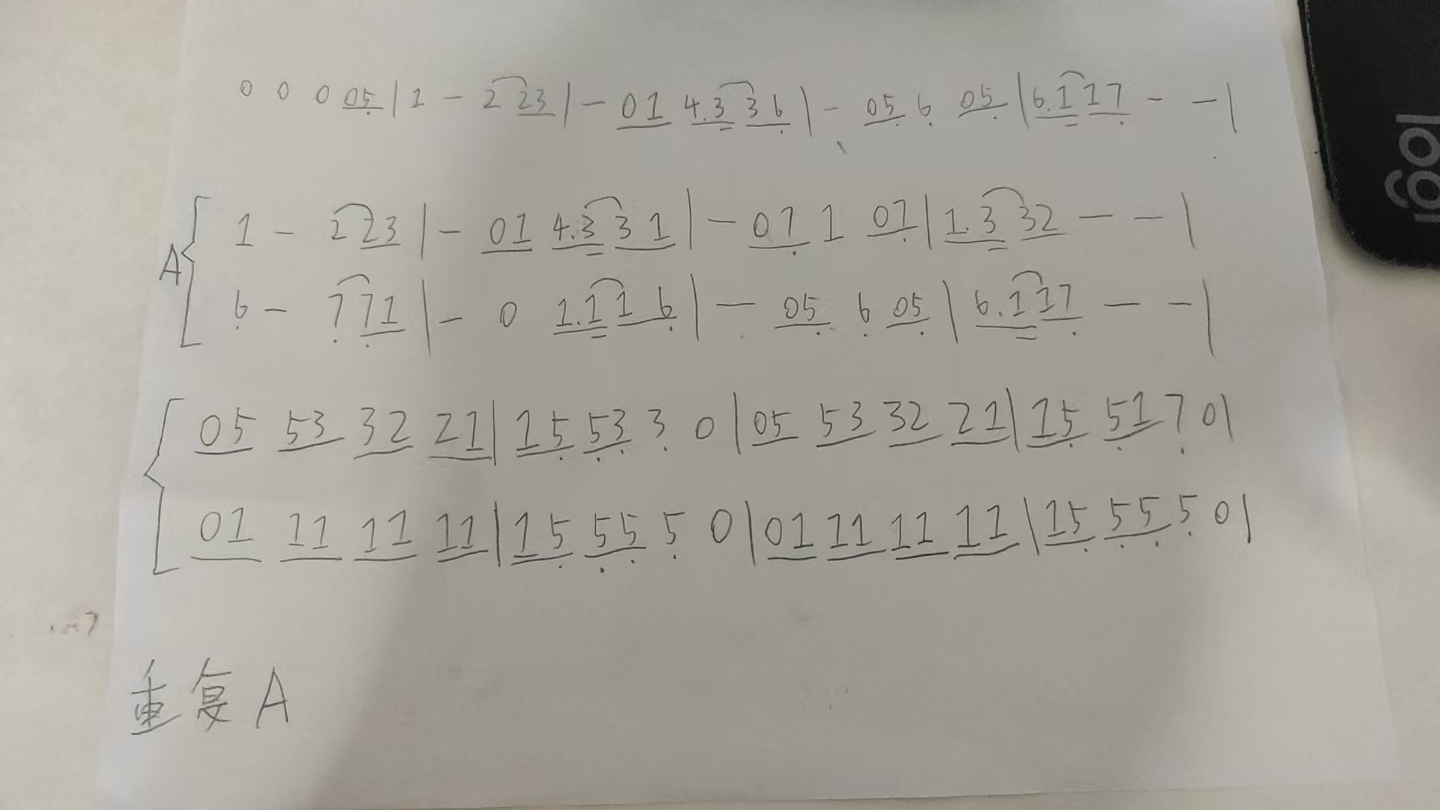 0 0 0 05 | 1 - 2 23 | - 01 4.3 36 | - 05 6 05 | 6.1 17 - - |
A { 1 - 2 23 | - 01 4.3 31 | - 07 1 07 | 1.3 32 - - |
6 - 7 71 | - 0 1.1 16 | - 05 6 05 | 6.1 17 - - |
{ 05 53 32 21 | 15 53 3 0 | 05 53 32 21 | 15 51 7 0 |
01 11 11 11 | 15 55 5 0 | 01 11 11 11 | 15 55 5 0 |
重复 A